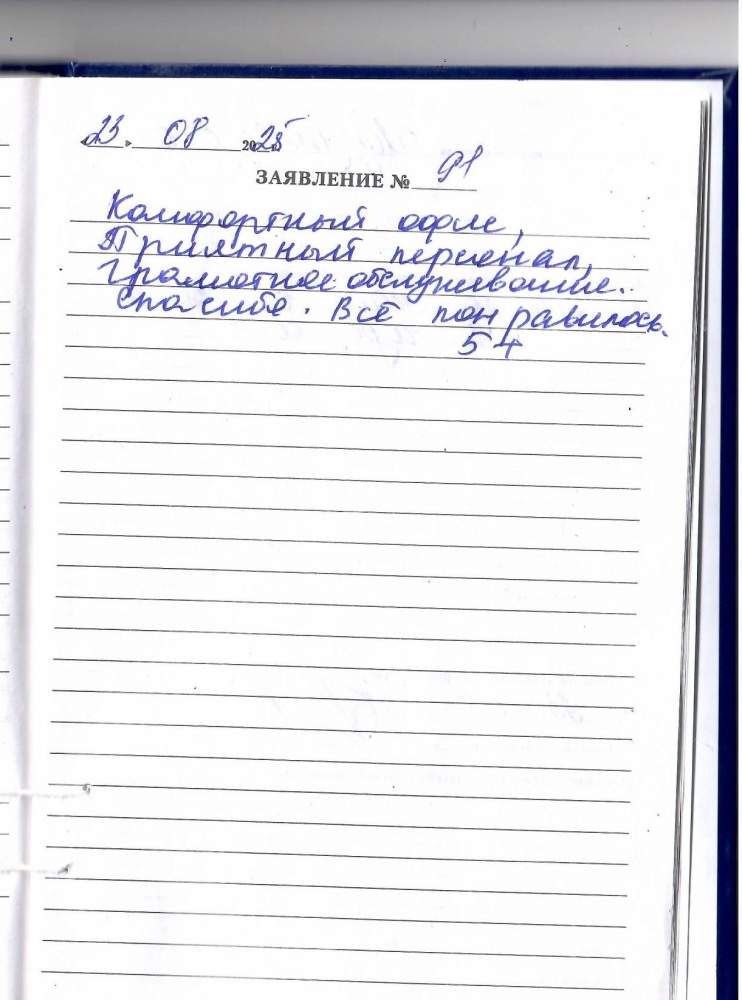 «23» 08 2025
ЗАЯВЛЕНИЕ № 91
Комфортный офис,
Приятный персонал,
грамотное обслуживание.
спасибо. Всё понравилось.
5+